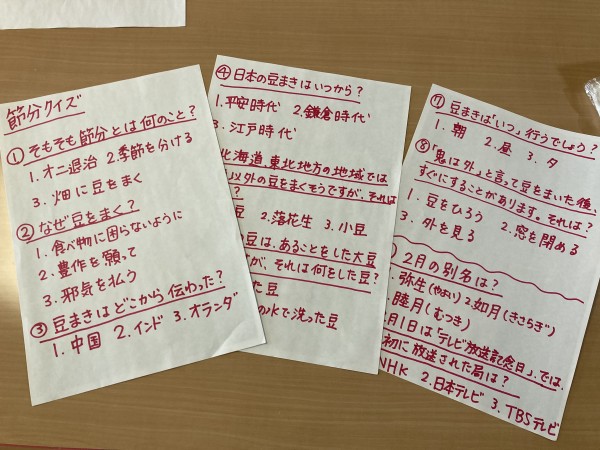 節分クイズ
① そもそも節分とは何のこと?
1. オニ退治 2. 季節を分ける
3. 畑に豆をまく
② なぜ豆をまく?
1. 食べ物に困らないように
2. 豊作を願って
3. 邪気を払う
③ 豆まきはどこから伝わった?
1. 中国 2. インド 3. オランダ
④ 日本の豆まきはいつから?
1. 平安時代 2. 鎌倉時代
3. 江戸時代
北海道、東北地方の地域では
以外の豆をまくそうですが、それは
?
豆 2. 落花生 3. 小豆
豆は、あることをした大豆
が、それは何をした豆?
た豆
の水で洗った豆
⑦ 豆まきは「いつ」行うでしょう?
1. 朝 2. 昼 3. 夕
⑧「鬼は外」と言って豆をまいた後、
すぐにすることがあります。それは?
1. 豆をひろう 2. 窓を閉める
3. 外を見る
2月の別名は?
弥生(やよい) 2. 如月(きさらぎ)
睦月(むつき)
月1日は「テレビ放送記念日」では、
初に放送された局は?
NHK 2. 日本テレビ 3. TBSテレビ